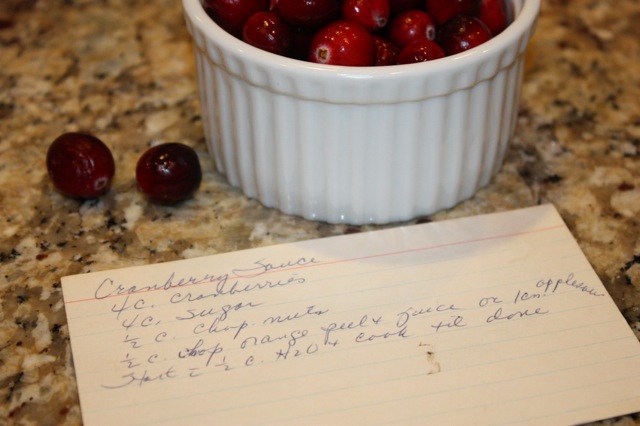 Cranberry Sauce
4 c. cranberries
4 c. sugar
½ c. chop. nuts
½ c. chop orange peel + juice or 1 cn. applesau
Start = ½ c. H2O + cook til done